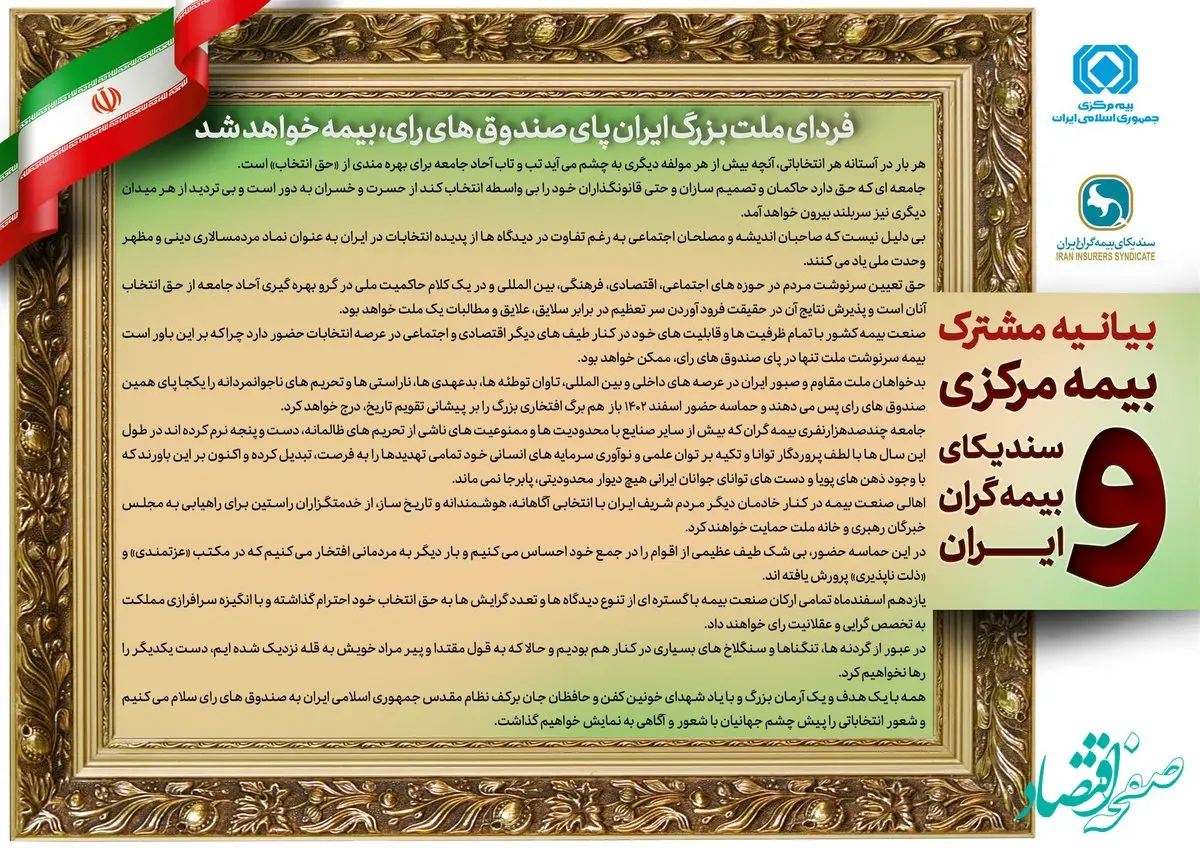 فردای ملت بزرگ ایران پای صندوق های رای، بیمه خواهد شد
هر بار در آستانه هر انتخاباتی، آنچه بیش از هر مولفه دیگری به چشم می آید تب و تاب آحاد جامعه برای بهره مندی از «حق انتخاب» است.
جامعه ای که حق دارد حاکمان و تصمیم سازان و حتی قانونگذاران خود را بی واسطه انتخاب کند از حسرت و خسران به دور است و بی تردید از هر میدان
دیگری نیز سربلند بیرون خواهد آمد.
بی دلیل نیست که صاحبان اندیشه و مصلحان اجتماعی به رغم تفاوت در دیدگاه ها از پدیده انتخابات در ایران به عنوان نماد مردمسالاری دینی و مظهر
وحدت ملی یاد می کنند.
حق تعیین سرنوشت مردم در حوزه های اجتماعی، اقتصادی، فرهنگی، بین المللی و در یک کلام حاکمیت ملی در گرو بهره گیری آحاد جامعه از حق انتخاب
آنان است و پذیرش نتایج آن در حقیقت فرود آوردن سر تعظیم در برابر سلایق، علایق و مطالبات یک ملت خواهد بود.
صنعت بیمه کشور با تمام ظرفیت ها و قابلیت های خود در کنار طیف های دیگر اقتصادی و اجتماعی در عرصه انتخابات حضور دارد چراکه بر این باور است
بیمه سرنوشت ملت تنها در پای صندوق های رای، ممکن خواهد بود.
بدخواهان ملت مقاوم و صبور ایران در عرصه های داخلی و بین المللی، تاوان توطئه ها، بدعهدی ها، ناراستی ها و تحریم های ناجوانمردانه را یکجا پای همین
صندوق های رای پس می دهند و حماسه حضور اسفند ۱۴۰۲ باز هم برگ افتخاری بزرگ را بر پیشانی تقویم تاریخ، درج خواهد کرد.
جامعه چندصدهزارنفری بیمه گران که بیش از سایر صنایع با محدودیت ها و ممنوعیت های ناشی از تحریم های ظالمانه، دست و پنجه نرم کرده اند در طول
این سال ها با لطف پروردگار توانا و تکیه بر توان علمی و نوآوری سرمایه های انسانی خود تمامی تهدیدها را به فرصت، تبدیل کرده و اکنون بر این باورند که
با وجود ذهن های پویا و دست های توانای جوانان ایرانی هیچ دیوار محدودیتی، پابرجا نمی ماند.
اهالی صنعت بیمه در کنار خادمان دیگر مردم شریف ایران با انتخابی آگاهانه، هوشمندانه و تاریخ ساز، از خدمتگزاران راستین برای راهیابی به مجلس
خبرگان رهبری و خانه ملت حمایت خواهند کرد.
در این حماسه حضور، بی شک طیف عظیمی از اقوام را در جمع خود احساس می کنیم و بار دیگر به مردمانی افتخار می کنیم که در مکتب «عزتمندی» و
«ذلت ناپذیری» پرورش یافته اند.
یازدهم اسفندماه تمامی ارکان صنعت بیمه با گستره ای از تنوع دیدگاه ها و تعدد گرایش ها به حق انتخاب خود احترام گذاشته و با انگیزه سرافرازی مملکت
به تخصص گرایی و عقلانیت رای خواهند داد.
در عبور از گردنه ها، تنگناها و سنگلاخ های بسیاری در کنار هم بودیم و حالا که به قول مقتدا و پیر مراد خویش به قله نزدیک شده ایم، دست یکدیگر را
رها نخواهیم کرد.
همه با یک هدف و یک آرمان بزرگ و با یاد شهدای خونین کفن و حافظان جان برکف نظام مقدس جمهوری اسلامی ایران به صندوق های رای سلام می کنیم
و شعور انتخاباتی را پیش چشم جهانیان با شعور و آگاهی به نمایش خواهیم گذاشت.
بیمه مرکزی
جمهوری اسلامی ایران
سندیکای بیمه گران ایران
IRAN INSURERS SYNDICATE
بیانیه مشترک
بیمه مرکزی
و
سندیکای
بیمه گران
ایران
صفحه اقتصاد